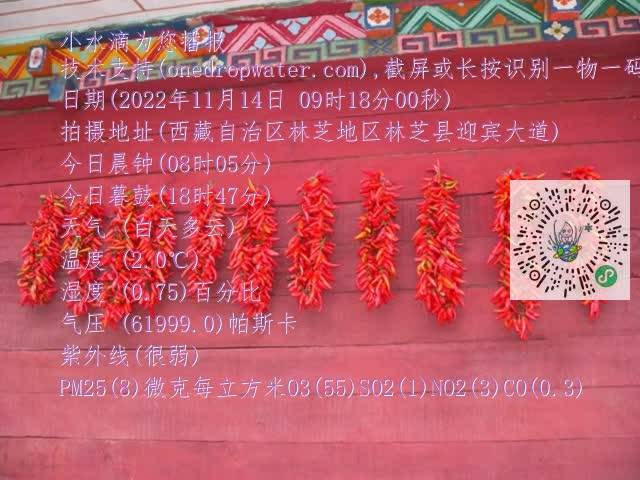 小水滴为您播报
技术支持(onedropwater.com),截屏或长按识别一物一码
日期(2022年11月14日 09时18分00秒)
拍摄地址(西藏自治区林芝地区林芝县迎宾大道)
今日晨钟(08时05分)
今日暮鼓(18时47分)
天气 (白天多云)
温度 (2.0℃)
湿度 (0.75)百分比
气压 (61999.0)帕斯卡
紫外线(很弱)
PM25(8)微克每立方米O3(55)SO2(1)NO2(3)CO(0.3)